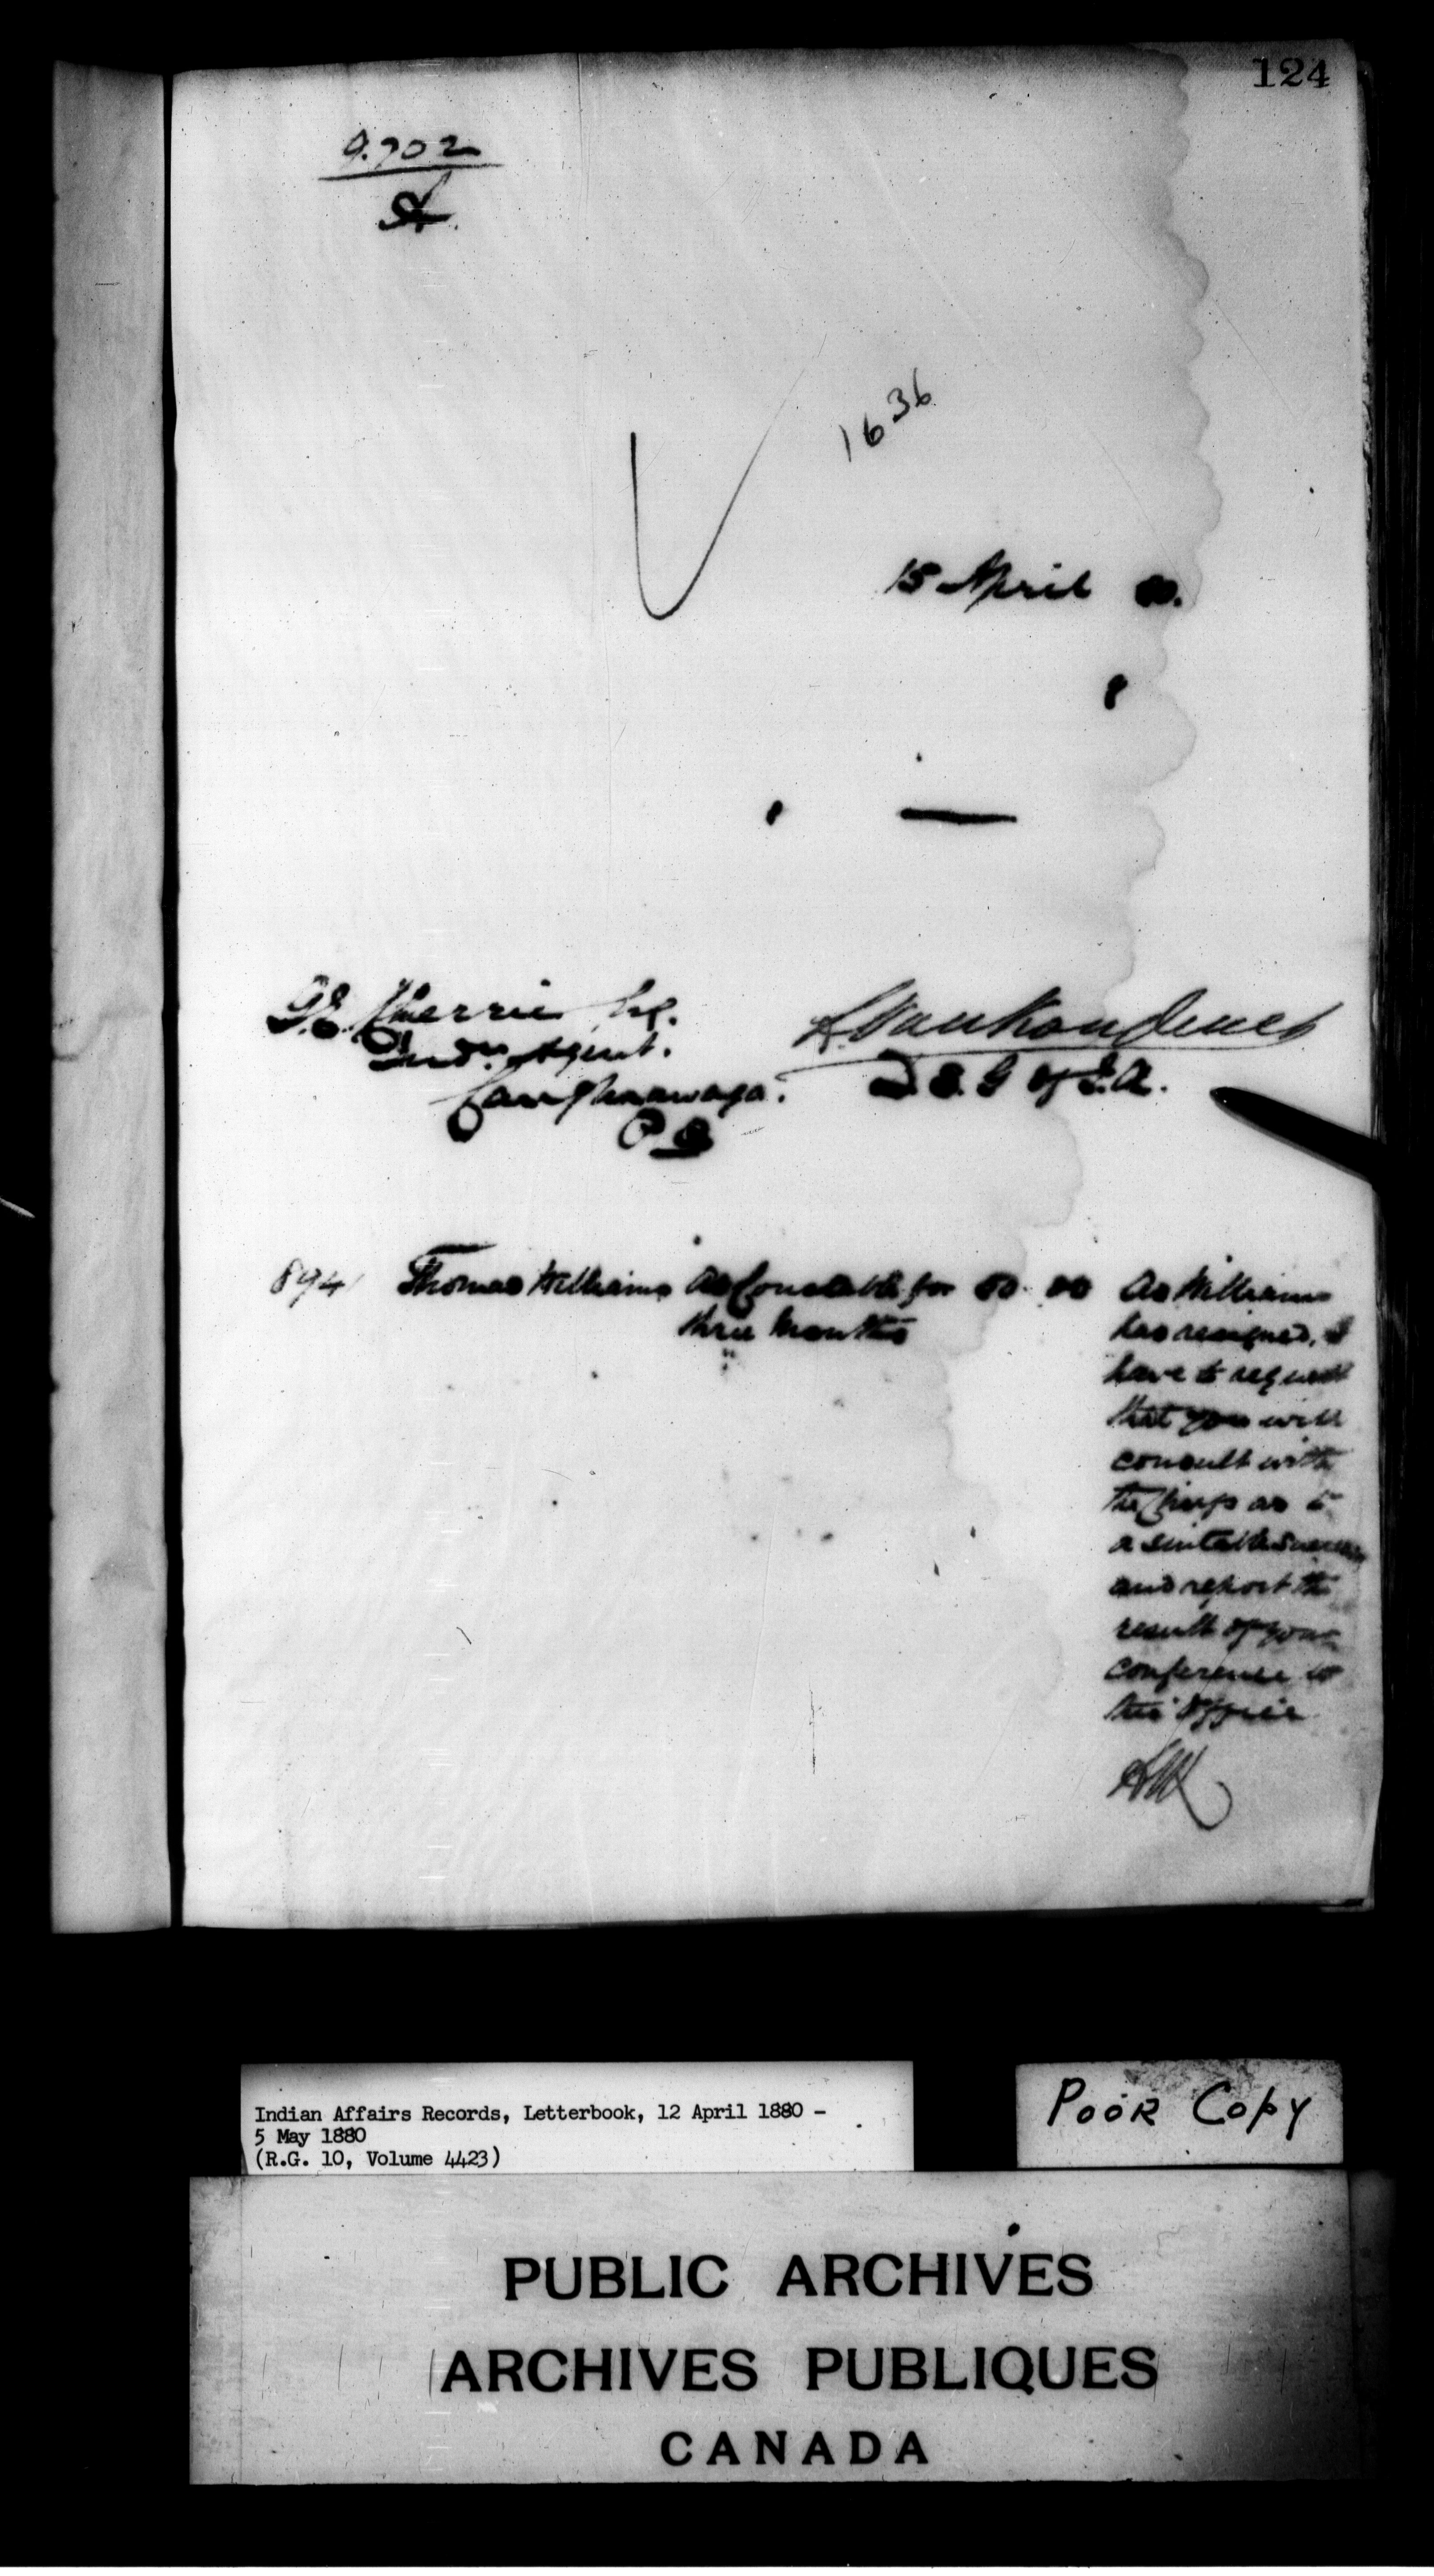 124
9.702
A.
1636
15 April 80.
G.E. Cherrier Esq.
Indn. Agent.
Caughnawaga.
P Q
L. VanKoughnet
D.S.G of I.A.
894 Thomas Williams as Constable for 50 00 As Williams
three Months has resigned, I
have to request
that you will
consult with
the Chiefs as to
a suitable Successor
and report the
result of your
conference to
this Office
LVK
Indian Affairs Records, Letterbook, 12 April 1880 -
5 May 1880
(R.G. 10, Volume 4423)
POOR COPY
PUBLIC ARCHIVES
ARCHIVES PUBLIQUES
CANADA